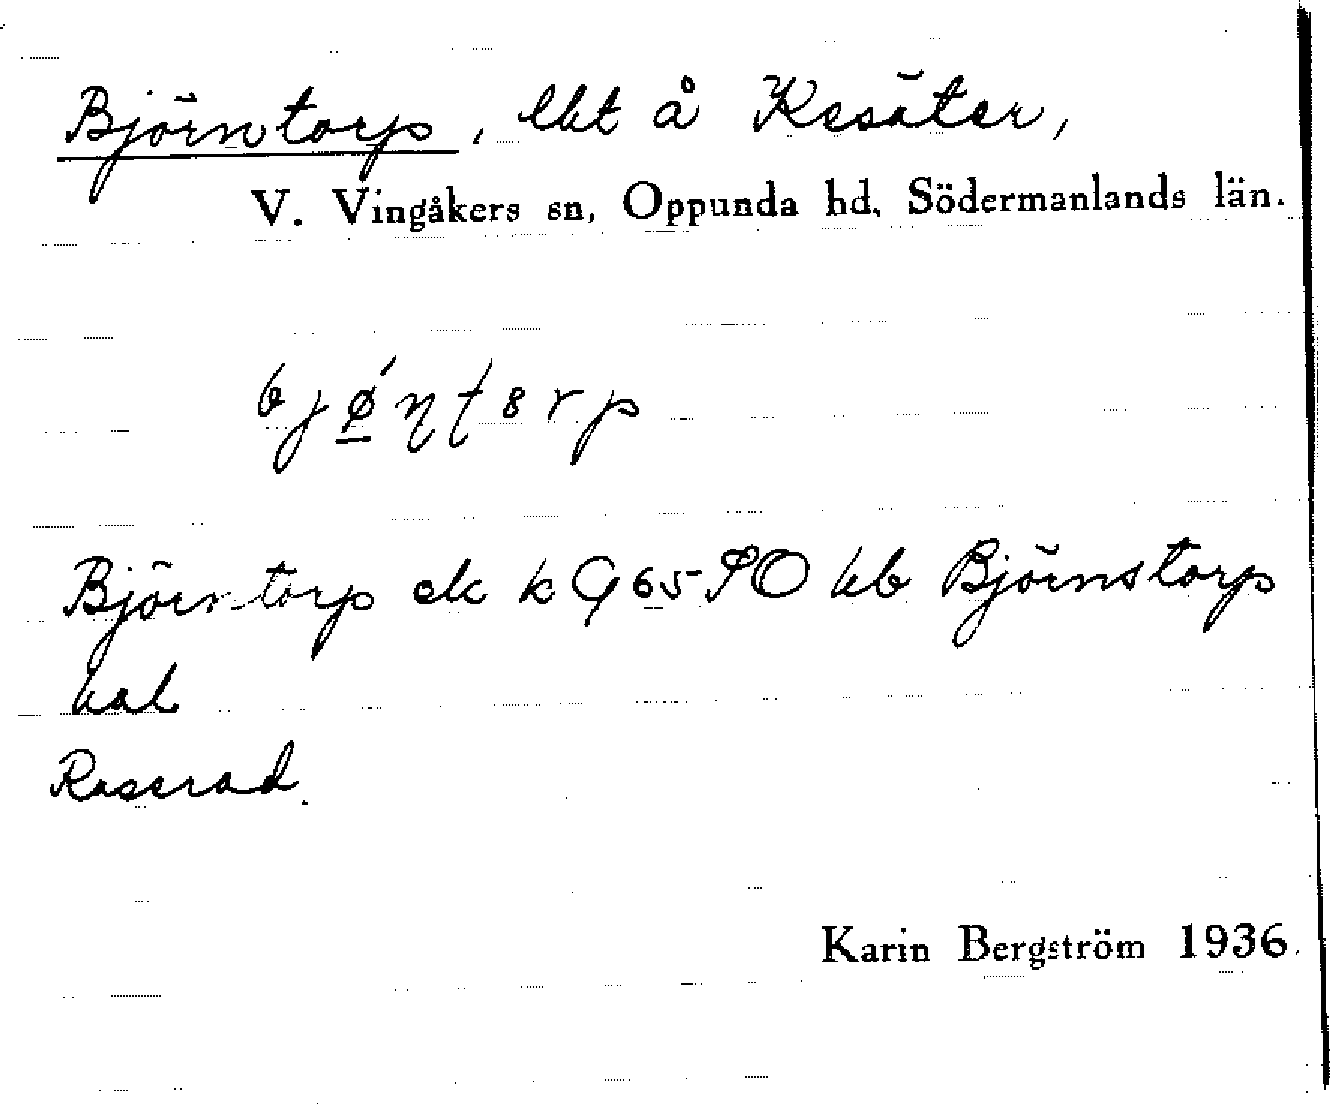 Björntorp, lht å Kesäter,
V. Vingåkers sn, Oppunda hd, Södermanlands län.
bjǿntorp
Björntorp ek k G 65 SO hb Björnstorp
hal
Raserad.
Karin Bergström 1936.